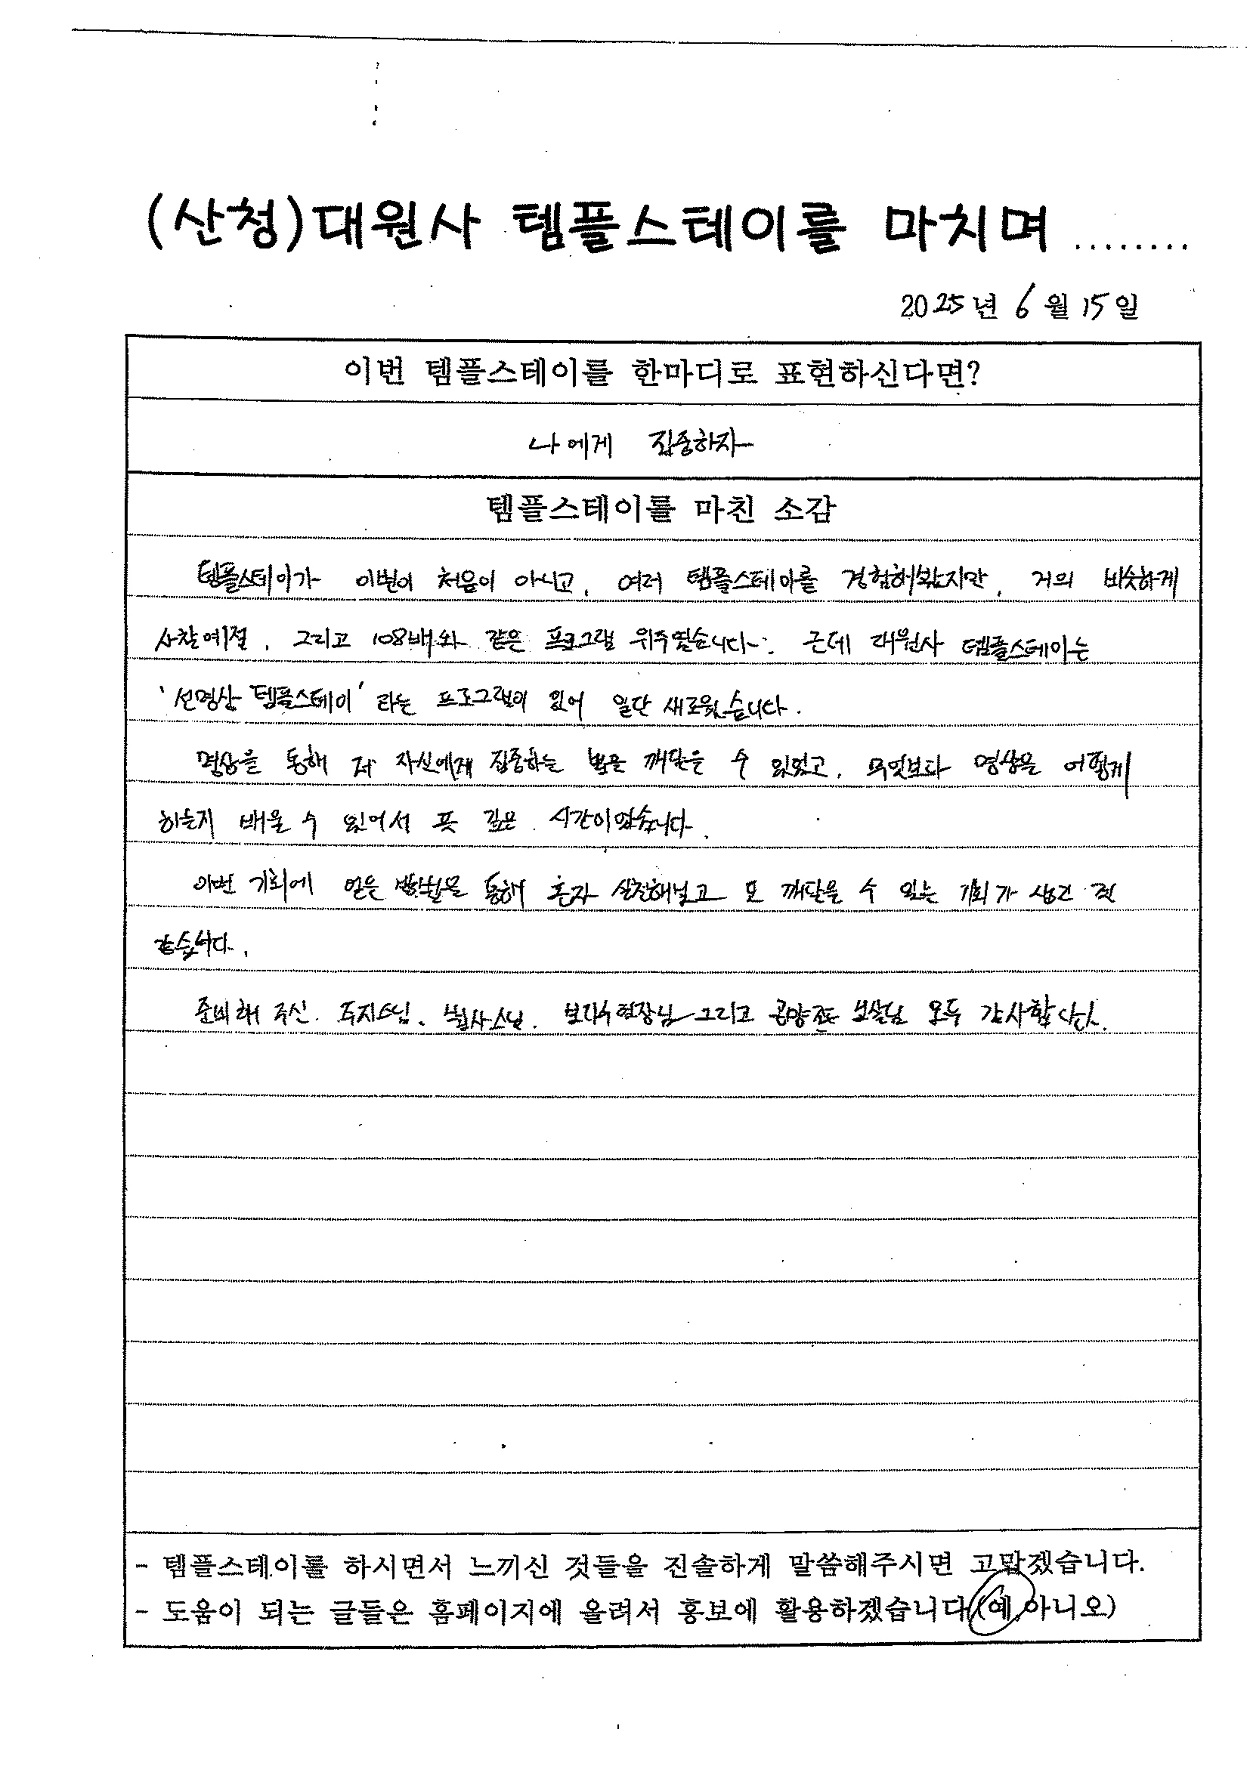 (산청)대원사 템플스테이를 마치며........
2025년 6월 15일
이번 템플스테이를 한마디로 표현하신다면?
나에게 집중하자
템플스테이를 마친 소감
템플스테이가 이번이 처음이 아니고, 여러 템플스테이를 경험해봤지만, 거의 비슷하게
사찰예절, 그리고 108배와 같은 프로그램 위주였습니다. 근데 대원사 템플스테이는
'선명상 템플스테이'라는 프로그램이 있어 일단 새로웠습니다.
명상을 통해 저 자신에게 집중하는 법을 깨달을 수 있었고, 무엇보다 명상을 어떻게
하는지 배울 수 있어서 뜻 깊은 시간이었습니다.
이번 기회에 얻은 방법을 통해 혼자 실천해보고 또 깨달을 수 있는 기회가 생긴 것
같습니다.
준비해 주신 주지스님, 스님, 그리고 공양주 보살님 모두 감사합니다.
- 템플스테이를 하시면서 느끼신 것들을 진솔하게 말씀해주시면 고맙겠습니다.
- 도움이 되는 글들은 홈페이지에 올려서 홍보에 활용하겠습니다(예,아니오)